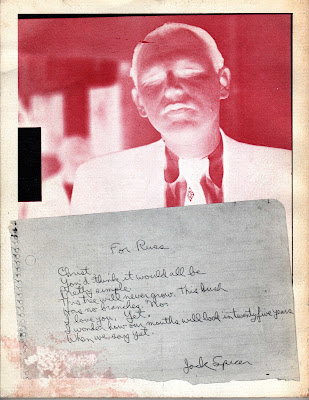 For Russ
Christ
You'd think it would all be
Pretty simple
This tree will never grow. This bush
Has no branches. Nor
I love you. Yet.
I wonder how our mouths will look in twenty five years
When we say yet.
Jack Spicer